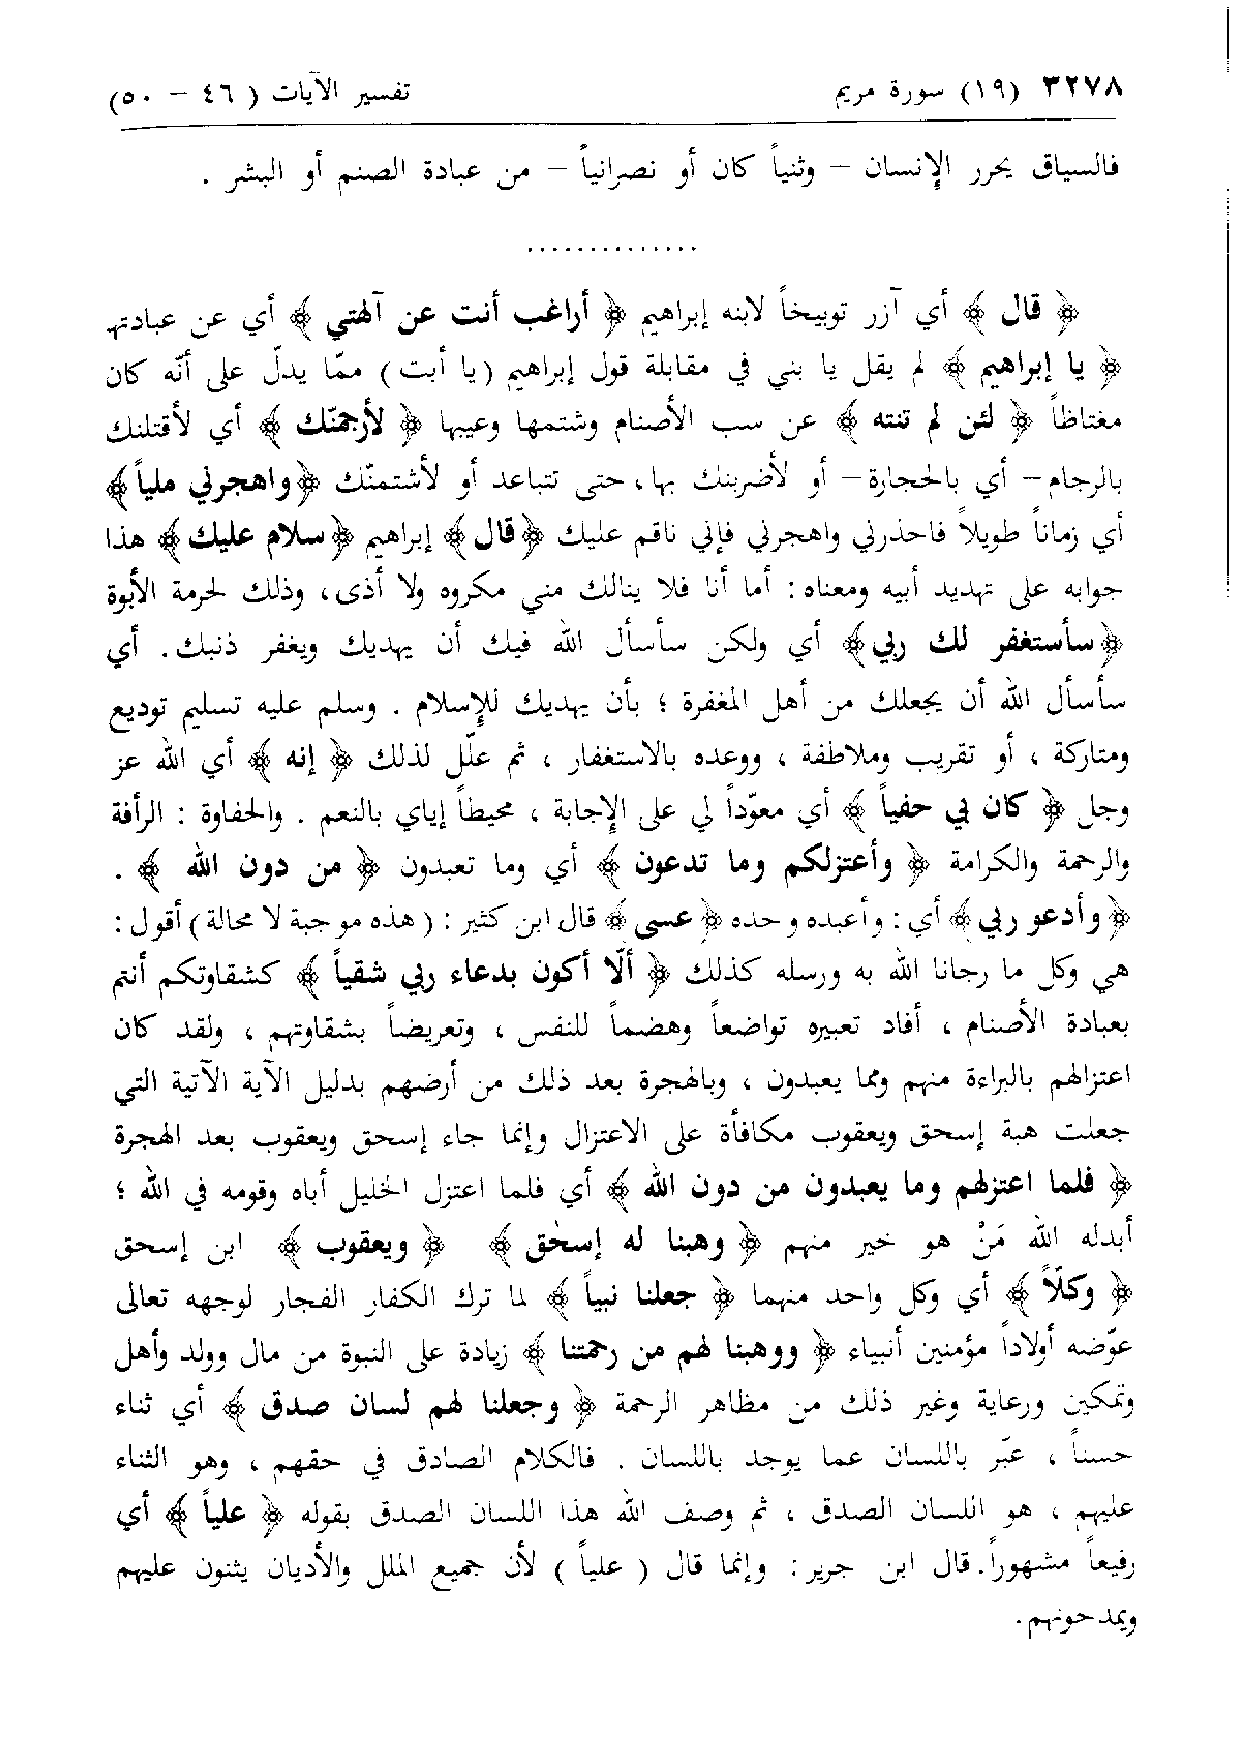 ٣٢٧٨ (١٩) سورة مريم تفسير الآيات ( ٤٦ – ٥٠)
فالسياق يحرر الإنسان – وثنياً كان أو نصرانياً – من عبادة الصنم أو البشر .
..............
﴿ قال ﴾ أي آزر توبيخاً لابنه إبراهيم ﴿ أراغب أنت عن آلهتي ﴾ أي عن عبادتها
﴿ يا إبراهيم ﴾ لم يقل يا بني في مقابلة قول إبراهيم (يا أبت ) ممّا يدلّ على أنّه كان
مغتاظاً ﴿ لئن لم تنته ﴾ عن سب الأصنام وشتمها وعيبها ﴿ لأرجمنّك ﴾ أي لأقتلنك
بالرجام – أي بالحجارة – أو لأضربنك بها ، حتى تتباعد أو لأشتمنّك ﴿واهجرني ملياً ﴾
أي زماناً طويلاً فاحذرني واهجرني فإني ناقم عليك ﴿قال ﴾ إبراهيم ﴿سلام عليك ﴾ هذا
جوابه على تهديد أبيه ومعناه : أما أنا فلا ينالك مني مكروه ولا أذى، وذلك لحرمة الأبوة
﴿سأستغفر لك ربي﴾ أي ولكن سأسأل الله فيك أن يهديك ويغفر ذنبك. أي
سأسأل الله أن يجعلك من أهل المغفرة ؛ بأن يهديك للإسلام . وسلم عليه تسليم توديع
ومتاركة ، أو تقريب وملاطفة ، ووعده بالاستغفار ، ثم علّل لذلك ﴿ إنه ﴾ أي الله عز
وجل ﴿ كان بي حفياً ﴾ أي معوّداً لي على الإجابة ، محيطاً إياي بالنعم . والحفاوة : الرأفة
والرحمة والكرامة ﴿ وأعتزلكم وما تدعون ﴾ أي وما تعبدون ﴿ من دون الله ﴾ .
﴿وأدعو ربي﴾ أي : وأعبده وحده ﴿عسى﴾ قال ابن كثير : ( هذه موجبة لا محالة ) أقول :
هي وكل ما رجانا الله به ورسله كذلك ﴿ ألّا أكون بدعاء ربي شقياً ﴾ كشقاوتكم أنتم
بعبادة الأصنام ، أفاد تعبيره تواضعاً وهضماً للنفس ، وتعريضاً بشقاوتهم ، ولقد كان
اعتزالهم بالبراءة منهم ومما يعبدون ، وبالهجرة بعد ذلك من أرضهم بدليل الآية الآتية التي
جعلت هبة إسحق ويعقوب مكافأة على الاعتزال وإنما جاء إسحق ويعقوب بعد الهجرة
﴿ فلما اعتزلهم وما يعبدون من دون الله ﴾ أي فلما اعتزل الخليل أباه وقومه في الله ؛
أبدله الله مَنْ هو خير منهم ﴿ وهبنا له إسحٰق ﴾ ﴿ ويعقوب ﴾ ابن إسحق
﴿ وكلّاً ﴾ أي وكل واحد منهما ﴿ جعلنا نبياً ﴾ لما ترك الكفار الفجار لوجهه تعالى
عوّضه أولاداً مؤمنين أنبياء ﴿ ووهبنا لهم من رحمتنا ﴾ زيادة على النبوة من مال وولد وأهل
وتمكين ورعاية وغير ذلك من مظاهر الرحمة ﴿ وجعلنا لهم لسان صدق ﴾ أي ثناء
حسناً ، عبّر باللسان عما يوجد باللسان . فالكلام الصادق في حقهم ، وهو الثناء
عليهم ، هو اللسان الصدق ، ثم وصف الله هذا اللسان الصدق بقوله ﴿ علياً ﴾ أي
رفيعاً مشهوراً. قال ابن جرير : وإنما قال ( علياً ) لأن جميع الملل والأديان يثنون عليهم
ويمدحونهم.